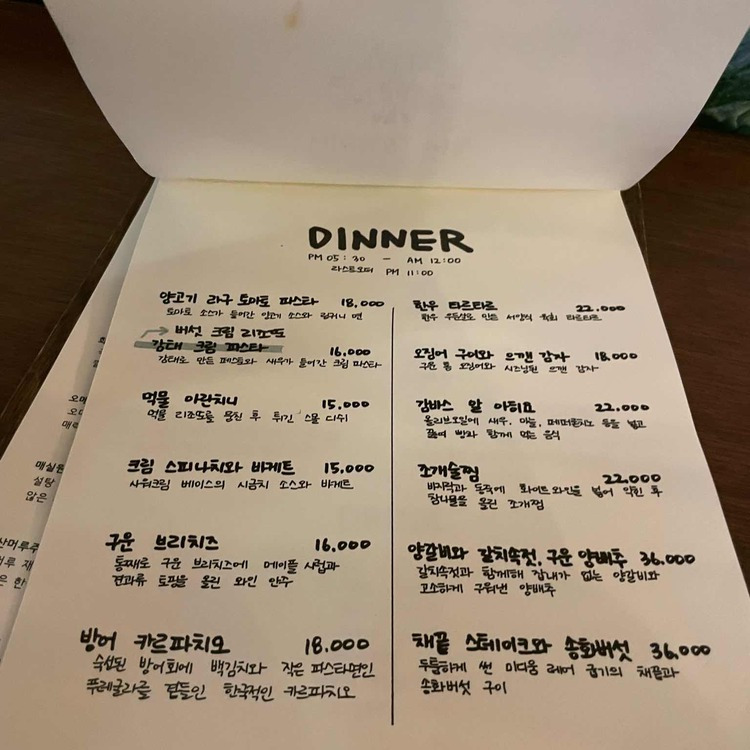 DINNER
PM 05:30 - AM 12:00
라스트오더 PM 11:00
양고기 라구 토마토 파스타 18,000
토마토 소스가 들어간 양고기 소스와 링귀니 면
버섯 크림 리조또
감태 크림 파스타 16,000
감태로 만든 페스토와 새우가 들어간 크림 파스타
먹물 아란치니 15,000
먹물 리조또를 뭉친 후 튀긴 스몰 디쉬
크림 스피나치와 바게트 15,000
사워크림 베이스의 시금치 소스와 바게트
구운 브리치즈 16,000
통째로 구운 브리치즈에 메이플 시럽과
견과류 토핑을 올린 와인 안주
방어 카르파치오 18,000
숙성된 방어회에 백김치와 작은 파스타면인
푸레굴라를 곁들인 한국적인 카르파치오
한우 타르타르 22,000
한우 우둔살로 만든 서양식 육회 타르타르
오징어 구이와 으깬 감자 18,000
구운 통 오징어와 시즈닝된 으깬 감자
감바스 알 아히요 22,000
올리브오일에 새우, 마늘, 페퍼론치노 등을 넣고
끓여 빵과 함께 먹는 음식
조개술찜 22,000
바지락과 동죽에 화이트와인을 넣어 익힌 후
참나물을 올린 조개찜
양갈비와 갈치속젓, 구운 양배추 36,000
갈치속젓과 함께해 잡내가 없는 양갈비와
고소하게 구워낸 양배추
채끝 스테이크와 송화버섯 36,000
두툼하게 썬 미디움 레어 굽기의 채끝과
송화버섯 구이
매실원
설탕
않은
산머루주